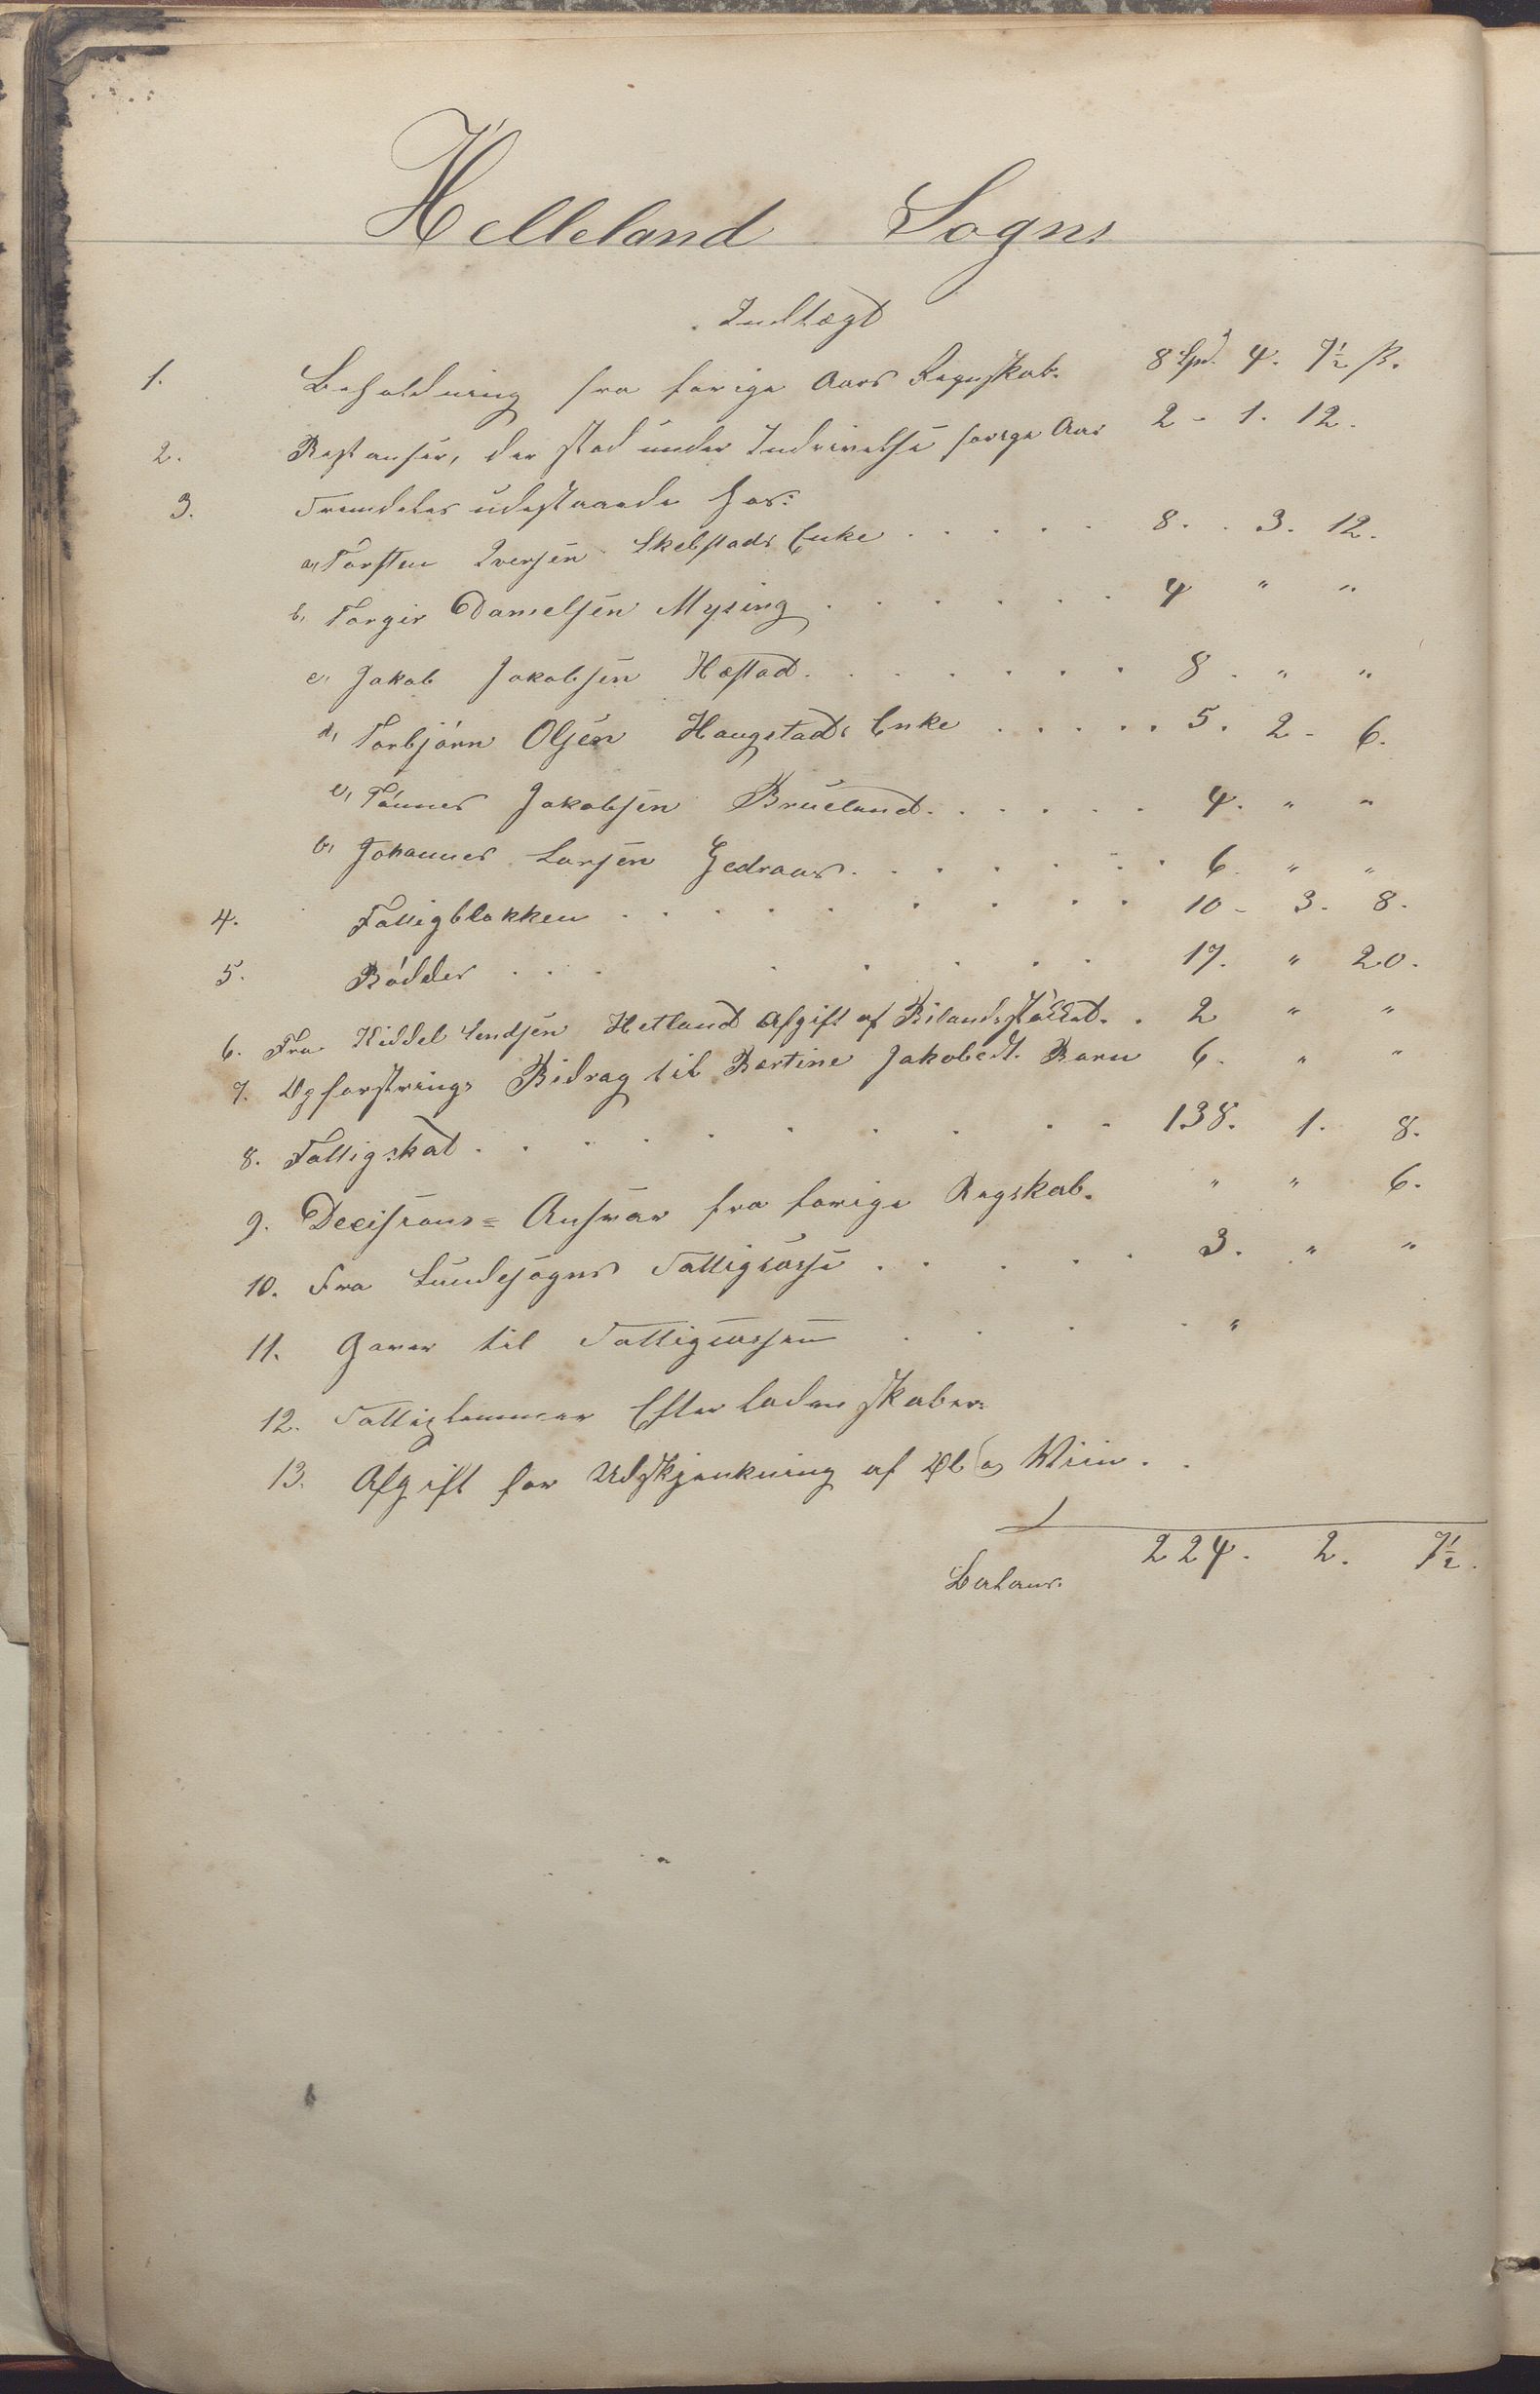 Helleland Sogns
Indtægt
1. Beholdning fra forige Aars Regnskab. 8 Spd. 4. 7½ ß.
2. Restanser, der stod under Inddrivelse forige Aar 2 - 1. 12.
3. Fremdeles udestaaende hos:
a, Torsten Iversen Skebstads Enke . . . . . 8. . 3. 12.
b, Torger Danielsen Mysing . . . . . . 4 " "
c, Jakob Jakobsen Hæstad. . . . . . . 8 . " "
d, Torbjørn Olsen Haugstads Enke . . . . . 5. 2 - 6.
e, Tønnes Jakobsen Brueland. . . . . . 4. " "
Johannes Larsen Gjedraas. . . . . . . 6. " "
4. Fattigblokken . . . . . . . . . 10 - 3. 8.
5. Bødder . . . . . . . . . 17. " 20.
6. Fra Kiddel Hetland Afgift af . 2 " "
7. Opfostrings Bidrag til Bertine Jakobsdt. Barn 6. " "
8. Fattigskat . . . . . . . . . 138. 1. 8.
9. Decisions= Ansvar fra forige Regskab. " " 6.
10. Fra Lundesogns Fattigcasse . . . . . 3. " "
11. Gaver til Fattigcassen . . . . "
12. Fattiglemmer Efterladenskaber.
13. Afgift for Udskjænkning af Øl og Viin . .
Latous. 224. 2. 7½.